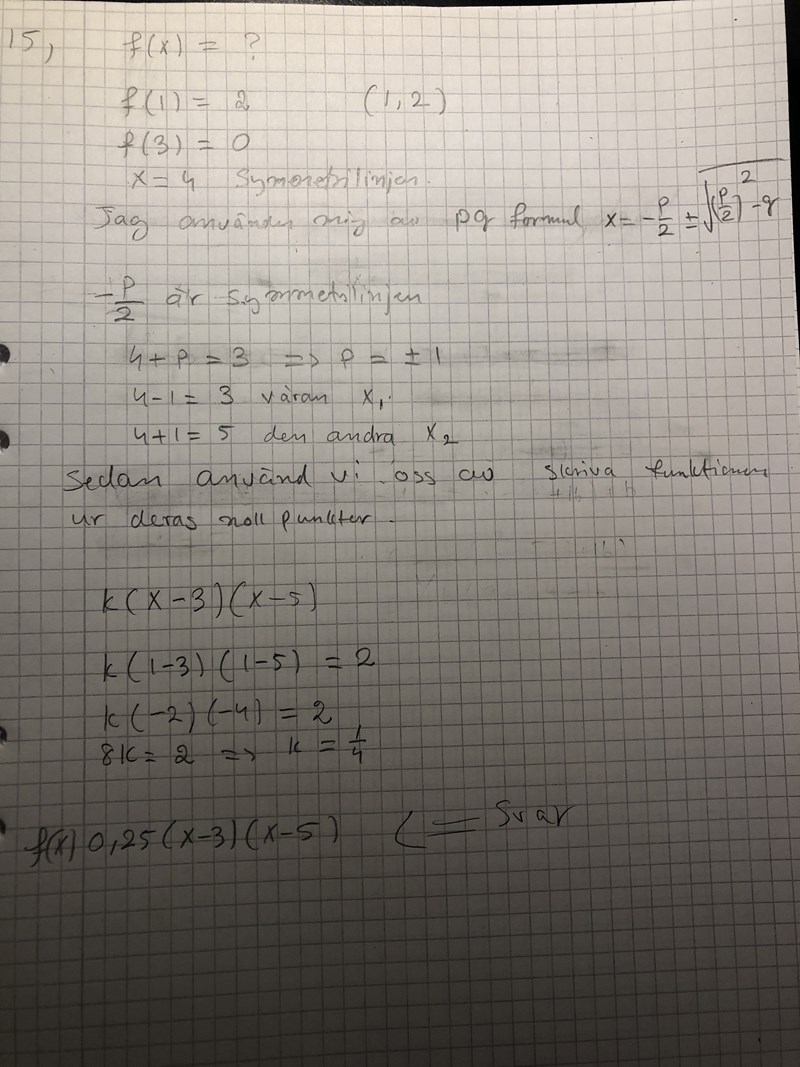 15, f(x) = ?
f(1) = 2 (1,2)
f(3) = 0
x = 4 Symmetrilinjen.
Jag använder mig av pq formul x = -p/2 ± √((p/2)² - q)
-p/2 är symmetrilinjen
4 + p = 3 => p = ± 1
4 - 1 = 3 våran x₁.
4 + 1 = 5 den andra x₂
Sedan använd vi oss av skriva funktionen
ur deras noll punkter.
k(x-3)(x-5)
k(1-3)(1-5) = 2
k(-2)(-4) = 2
8k = 2 => k = 1/4
f(x) 0,25(x-3)(x-5) <= Svar